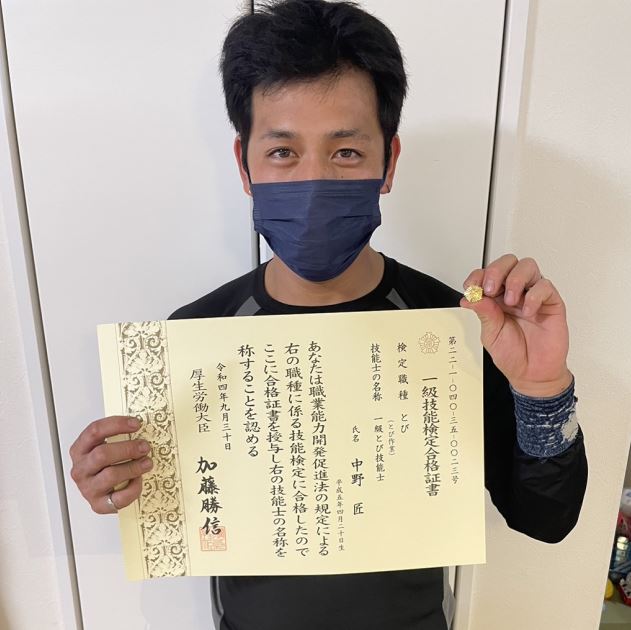 第二二-一-〇四〇-三五-〇〇二三号
一級技能検定合格証書
検定職種 とび
(とび作業)
技能士の名称 一級とび技能士
氏名 中野 匠
平成五年四月二十日生
あなたは職業能力開発促進法の規定による
右の職種に係る技能検定に合格したので
ここに合格証書を授与し右の技能士の名称を
称することを認める
令和四年九月三十日
厚生労働大臣 加藤勝信